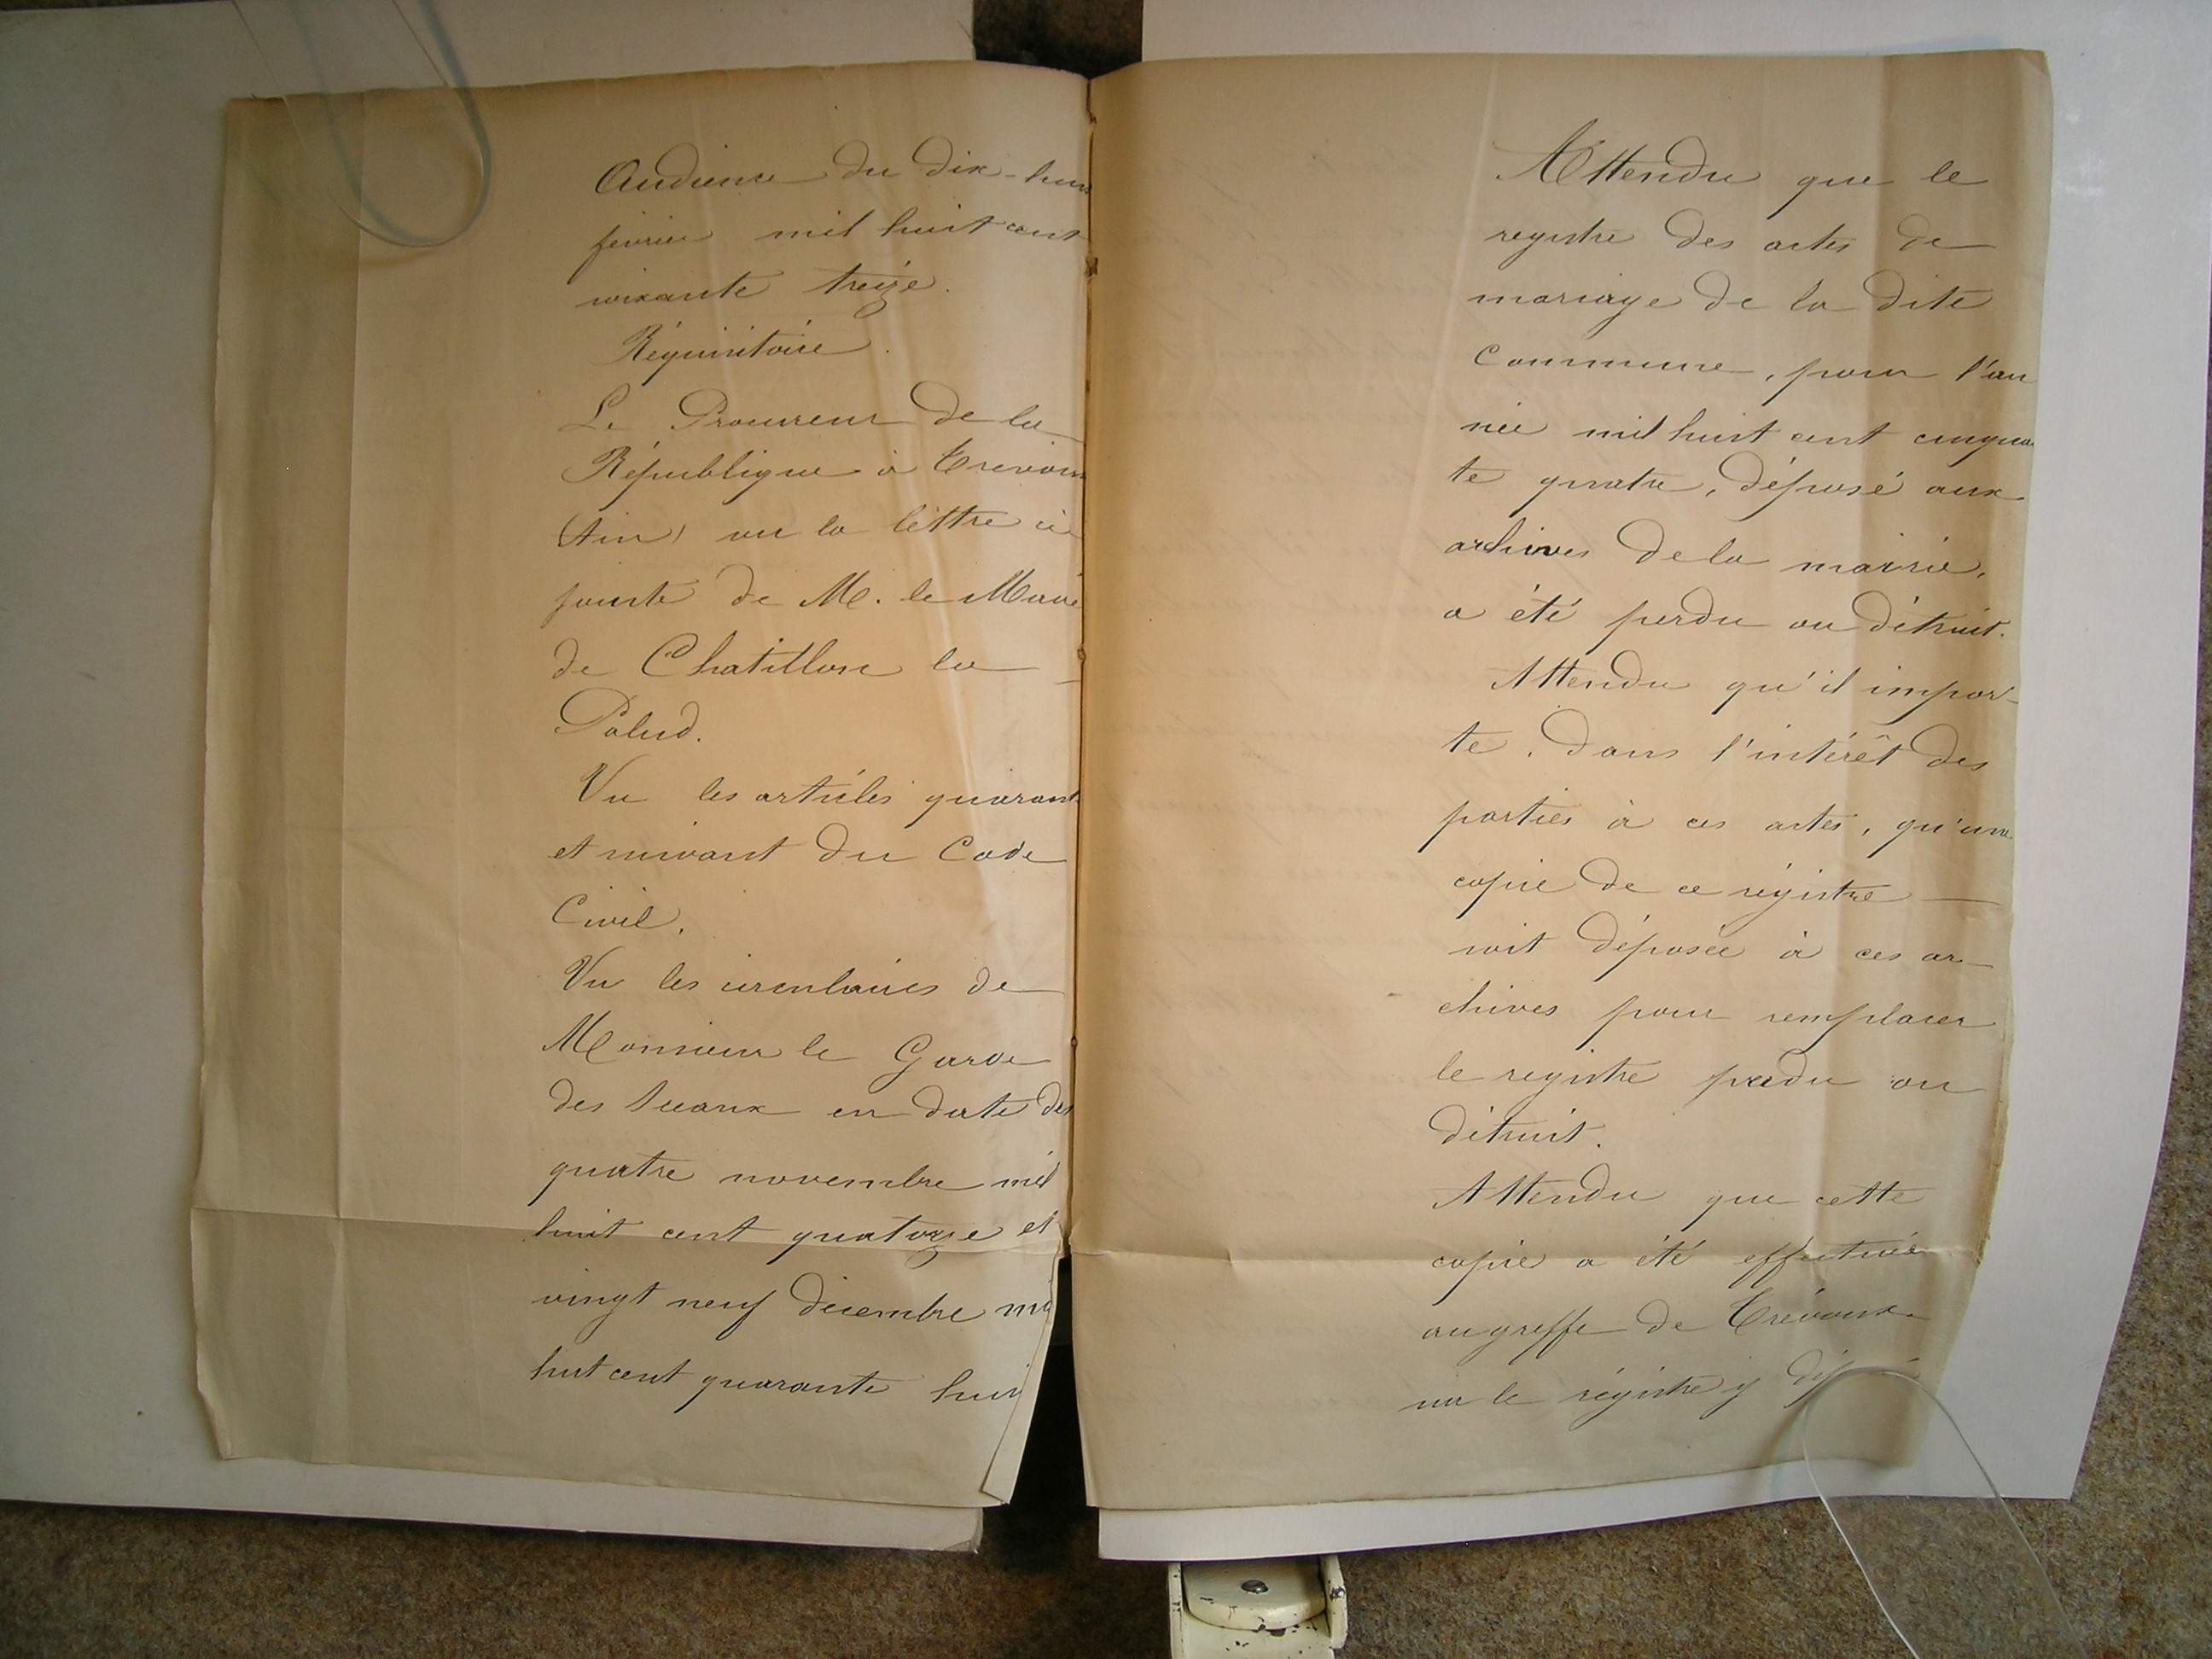 Audience du dix-huit
février mil huit cent
soixante treize.
Réquisitoire.
Le Procureur de la
République à Trévoux
(Ain) vu la lettre ci
jointe de M. le Maire
de Chatillon la
Palud.
Vu les articles quarante
et suivant du Code
Civil.
Vu les circulaires de
Monsieur le Garde
des Sceaux en date des
quatre novembre mil
huit cent quatorze et
vingt neuf décembre mil
huit cent quarante huit
Attendu que le
registre des actes de
mariage de la dite
Commune, pour l'an
née mil huit cent cinquan
te quatre, déposé aux
archives de la mairie,
a été perdu ou détruit.
Attendu qu'il impor-
te, dans l'intérêt des
parties à ces actes, qu'une
copie de ce régistre
soit déposée à ces ar
chives pour remplacer
le registre perdu ou
détruit.
Attendu que cette
copie a été effectuée
au greffe de Trévoux
sur le régistre y